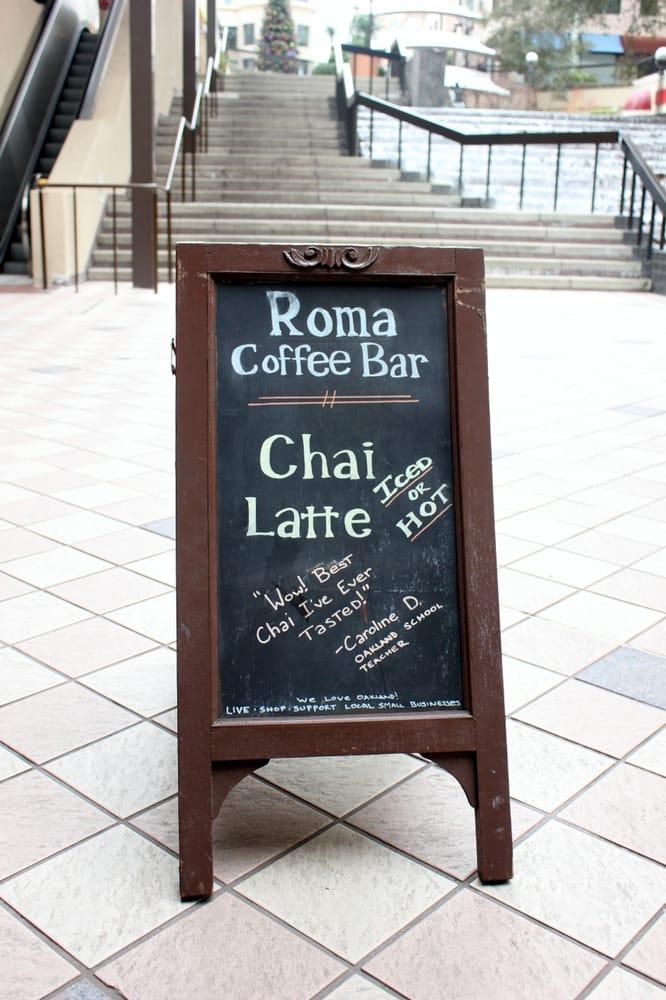 Roma
Coffee Bar
Chai
Latte
Iced
or
Hot
"Wow! Best
Chai I've Ever
Tasted!"
-Caroline D.
Oakland School
Teacher
We Love Oakland!
Live · Shop · Support Local Small Businesses